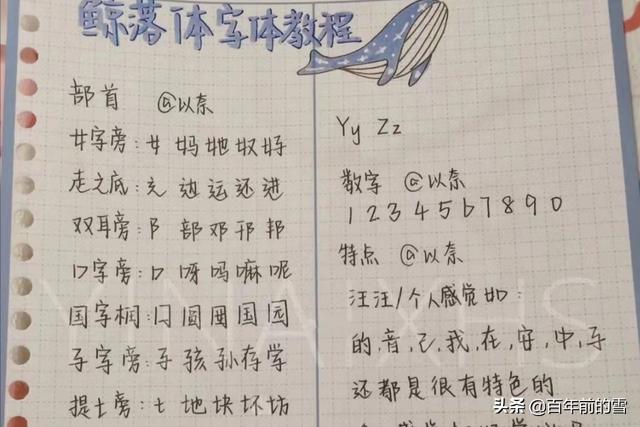 鲸落体字体教程
部首 @以奈
女字旁:女 妈 她 奴 好
走之底:辶 边 运 还 进
双耳旁:阝 部 邓 邗 邦
口字旁:口 呀 吗 嘛 呢
国字框:囗 圆 国 园
子字旁:子 孩 孙 存 学
提土旁:土 地 块 坏 坊
Yy Zz
数字 @以奈
1 2 3 4 5 6 7 8 9 0
特点 @以奈
汪汪/个人感觉如:
的,音,己,我,在,安,中,子
还都是很有特色的
头条 @百年前的雪